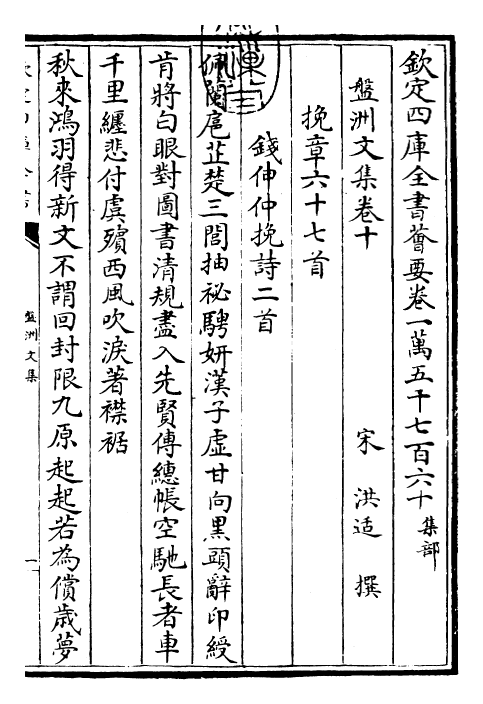 欽定四庫全書薈要卷一萬五千七百六十 集部
盤洲文集卷十 宋 洪适 撰
挽章六十七首
錢伸仲挽詩二首
佩蘭扈芷楚三閭抽袐騁妍漢子虛甘向黑頭辭印綬
肯將白眼對圖書清規盡入先賢傳繐帳空馳長者車
千里纏悲付虞殯西風吹淚著襟裾
秋來鴻羽得新文不謂回封限九原起起若為償歲夢
盤洲文集
一